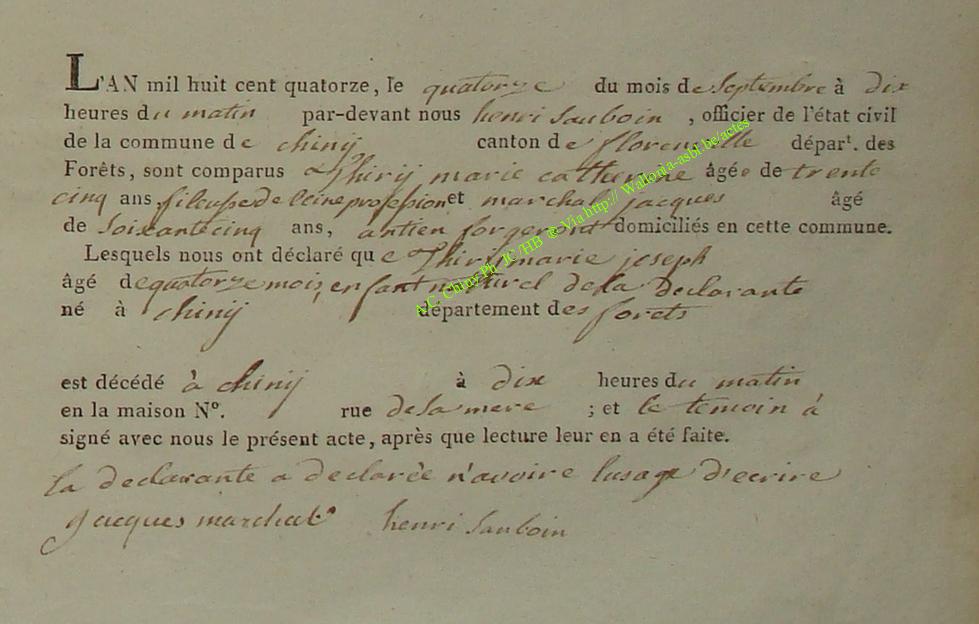 L'AN mil huit cent quatorze, le quatorze du mois de Septembre à dix
heures du matin par-devant nous henri Sauboin , officier de l'état civil
de la commune de chinÿ canton de florenville départ. des
Forêts, sont comparus Thirÿ marie catherine âgée de trente
cinq ans fileuse de leine profession et marchal jacques âgé
de Soixantecinq ans, antien forgeront domiciliés en cette commune.
Lesquels nous ont déclaré que Thirÿ marie joseph
âgé de quatorze mois, enfant naturel de la declarante
né à chinÿ département des forets
est décédé à chinÿ à dix heures du matin
en la maison N°. rue de sa mere ; et le temoin à
signé avec nous le présent acte, après que lecture leur en a été faite.
la declarante a declarée n'avoire lusage d'ecrire
jacques marchal henri Sauboin
A.C. Chiny Ph. JC /HB © Via http:// Wallonia-asbl.be/actes